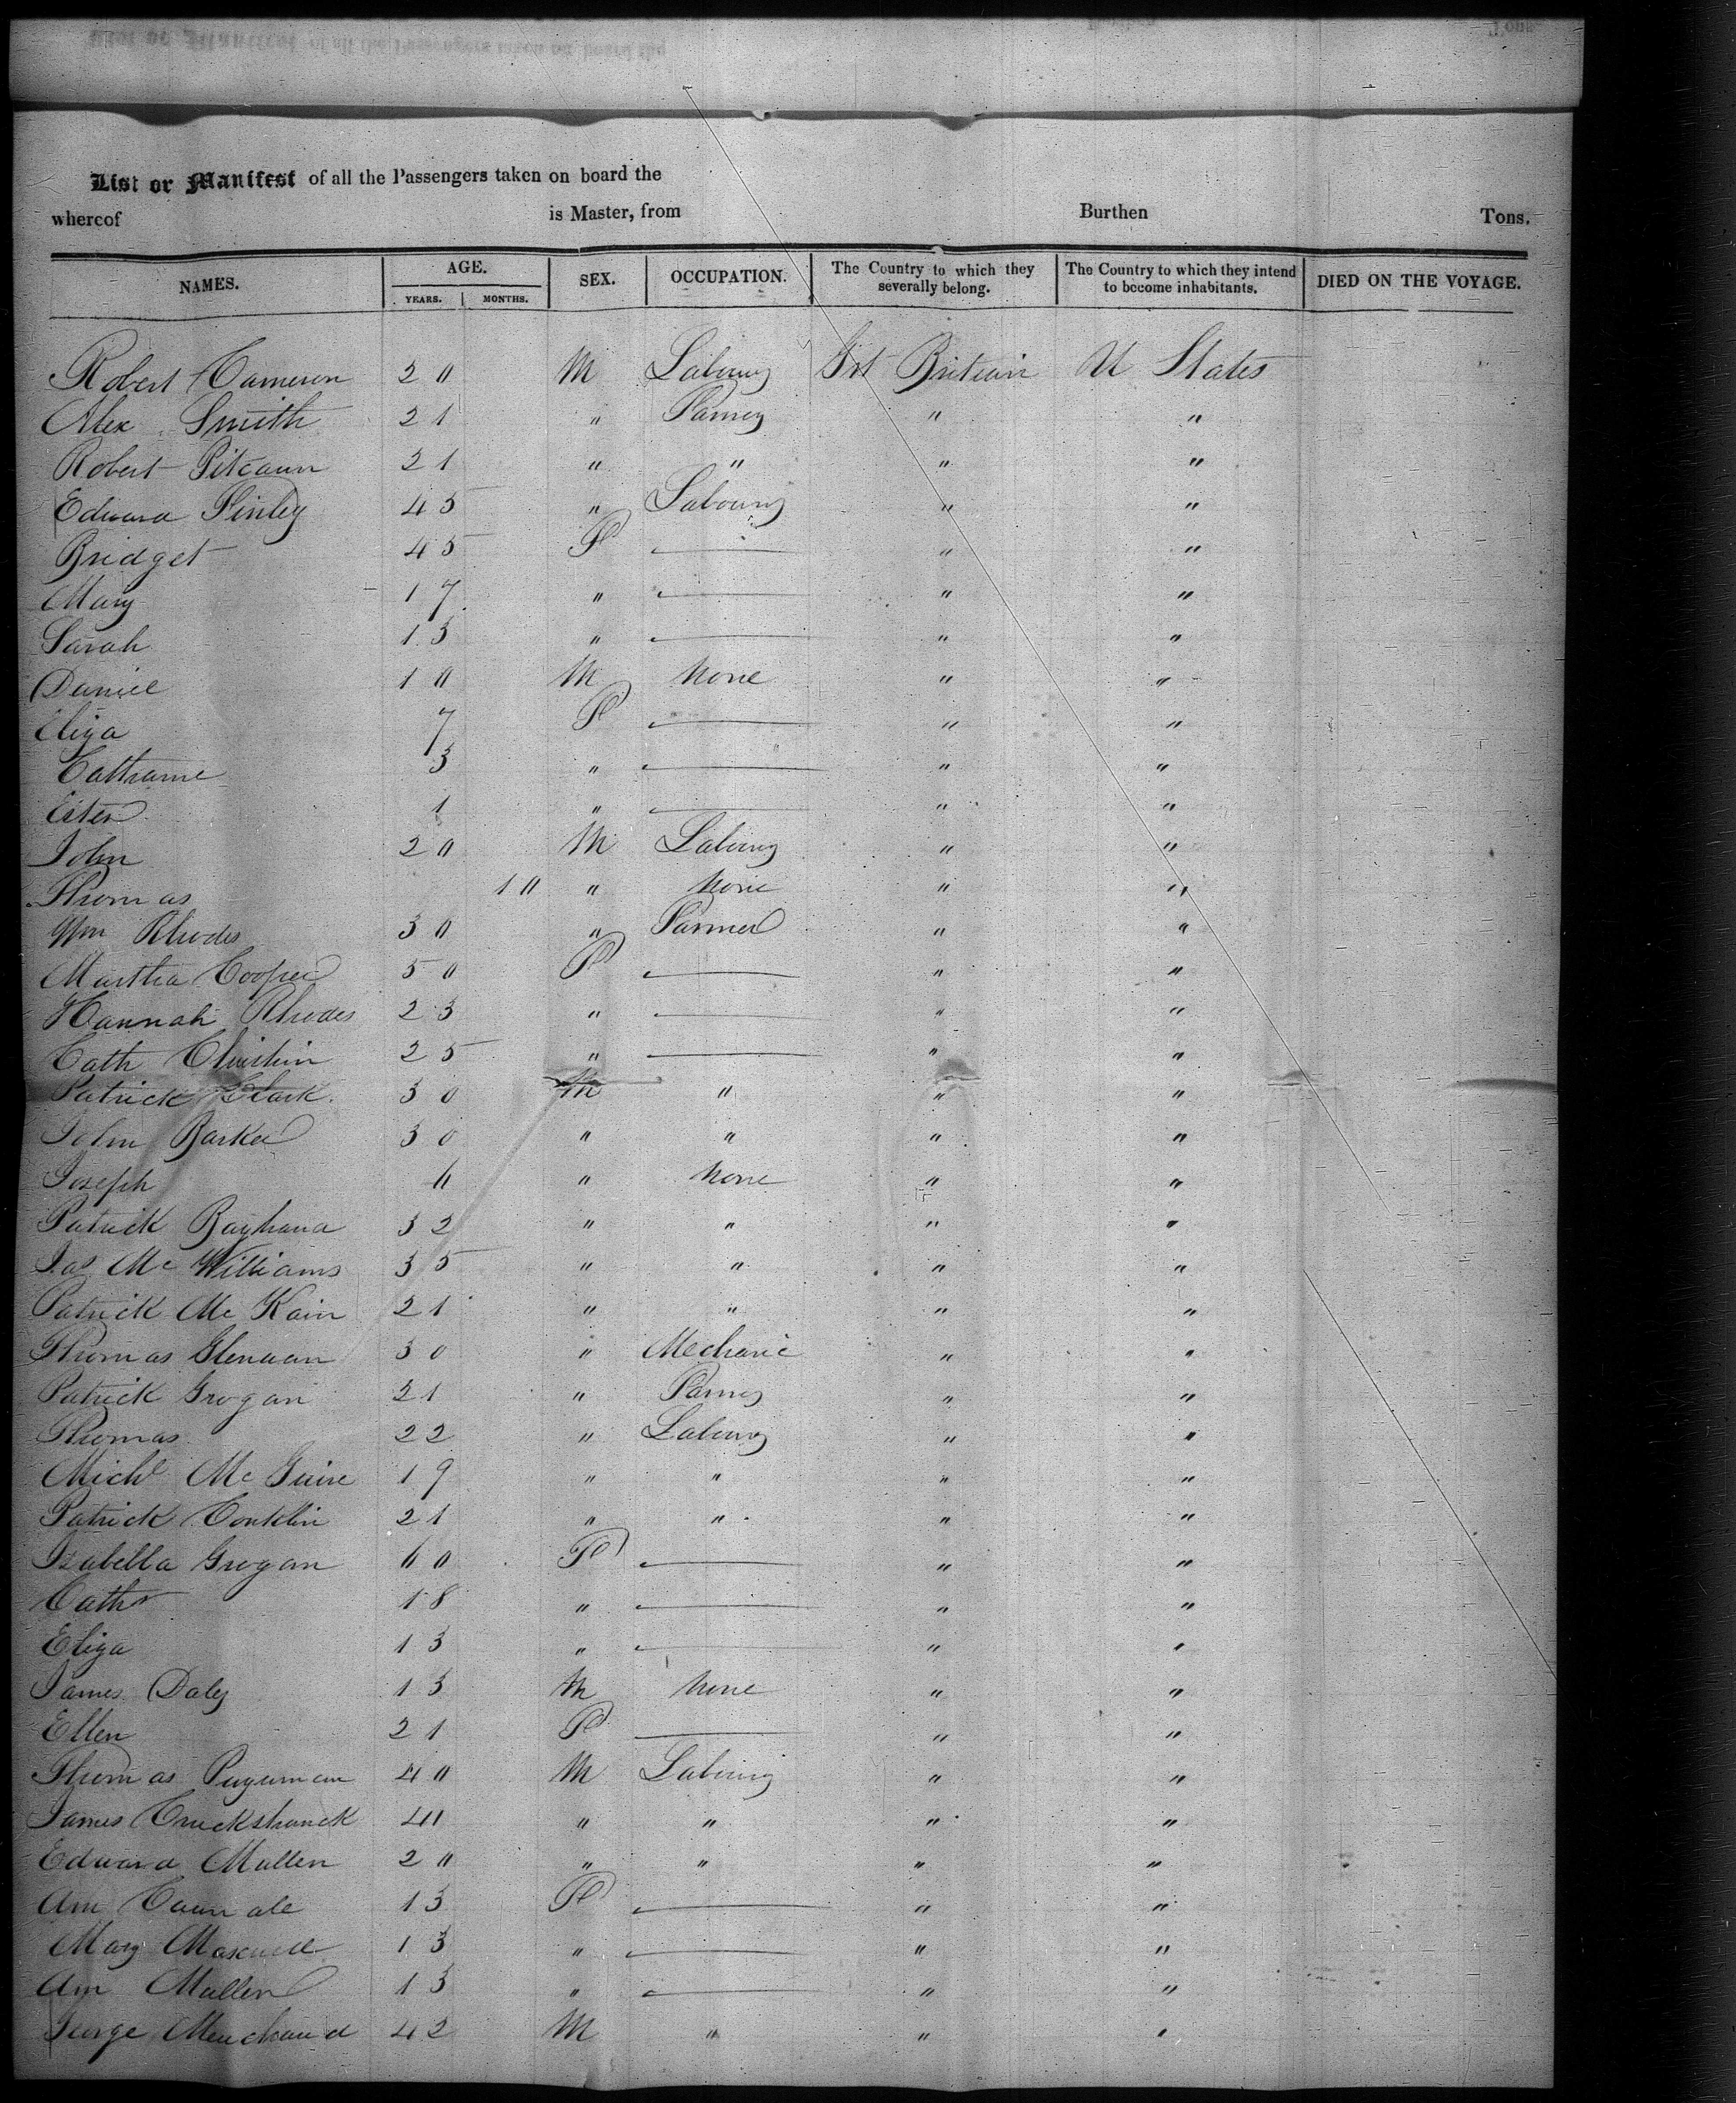 List or Manifest of all the Passengers taken on board the
whereof is Master, from Burthen Tons.
NAMES. AGE. YEARS. MONTHS. SEX. OCCUPATION. The Country to which they severally belong. The Country to which they intend to become inhabitants. DIED ON THE VOYAGE.
Robert Cameron 20 M Labourg Grt Britain U States
Alex Smith 21 " Farmg " "
Robert Pitcaun 21 " " " "
Edward Finley 45 " Labourg " "
Bridget 45 F — " "
Mary 17 " — " "
Sarah 13 " — " "
Daniel 10 M None " "
Eliza 7 F — " "
Cathrame 3 " — " "
Ester 1 " — " "
John 20 M Labourg " "
Thomas 10 " None " "
Wm Rhodes 30 " Farmer " "
Martha Cooper 50 F — " "
Hannah Rhodes 23 " — " "
Cath 25 " — " "
Patrick Clark 30 M " " "
John Barker 30 " " " "
Joseph 6 " None " "
Patrick 32 " " " "
Jas McWilliams 35 " " " "
Patrick McKain 21 " " " "
Thomas Glenaan 30 " Mechanic " "
Patrick Grogan 21 " Farmg " "
Thomas 22 " Labourg " "
Michl McGuire 19 " " " "
Patrick Conklin 21 " " " "
Izabella Grogan 60 F — " "
Cathr 18 " — " "
Eliza 13 " — " "
James Daley 13 M None " "
Ellen 21 F — " "
Thomas 40 M Labourg " "
James Cruckshanck 40 " " " "
Edward Mullen 20 " " " "
Ann 13 F — " "
Mary Maxwell 13 " — " "
Ann Mullen 13 " — " "
George Merchand 42 M " " "